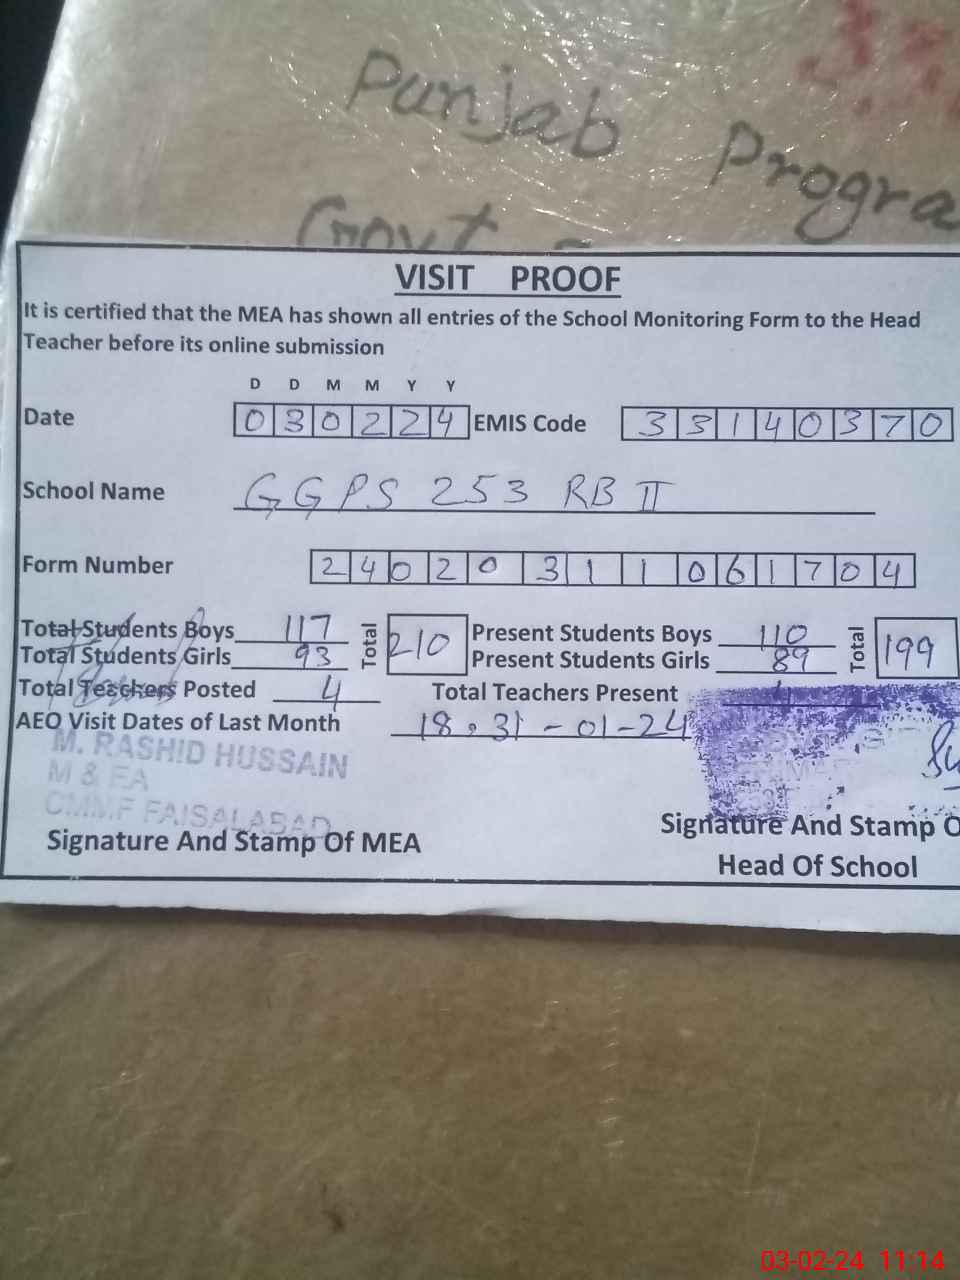 Punjab Progra
Govt
VISIT PROOF
It is certified that the MEA has shown all entries of the School Monitoring Form to the Head
Teacher before its online submission
D D M M Y Y
Date 030224 EMIS Code 33140370
School Name GGPS 253 RB II
Form Number 24020311061704
Total Students Boys 117 Total 210 Present Students Boys 110 Total 199
Total Students Girls 93 Present Students Girls 89
Total Teachers Posted 4 Total Teachers Present 4
AEO Visit Dates of Last Month 18, 31-01-24
M. RASHID HUSSAIN
M & EA
CMMF FAISALABAD
Signature And Stamp Of MEA Signature And Stamp O
Head Of School
03-02-24 11:14